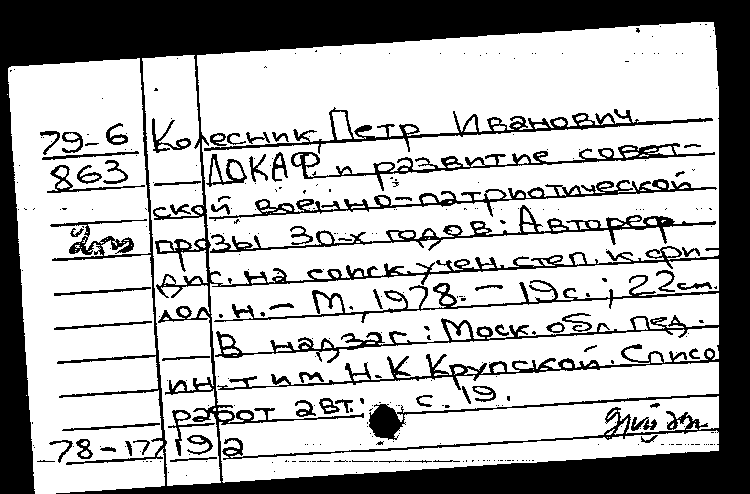 79-6 Колесник, Петр Иванович.
863 ЛОКАФ и развитие совет-
ской военно-патриотической
прозы 30-х годов: Автореф.
дис. на соиск. учен. степ. к. фи-
лол. н. – М., 1978. – 19 с.; 22 см.
В надзаг.: Моск. обл. пед.
ин-т им. Н. К. Крупской. Списо
работ авт.: с. 19.
78-17719 а